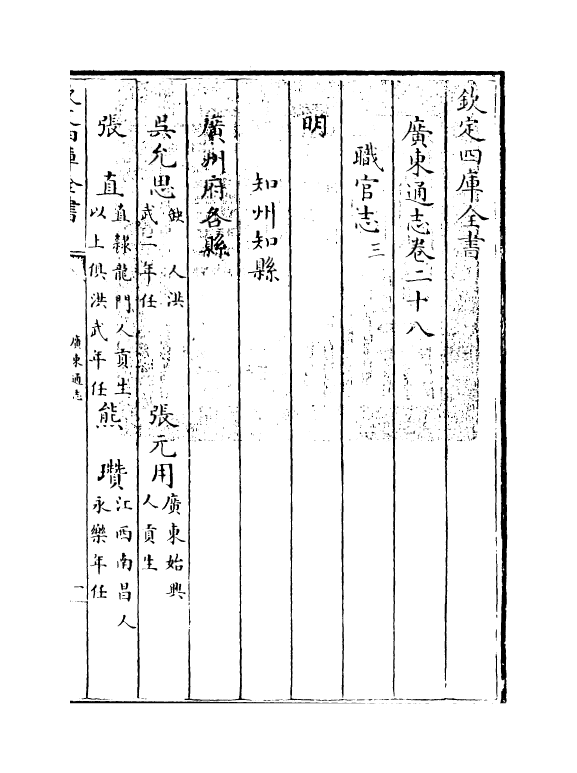 欽定四庫全書
廣東通志卷二十八
職官志三
明
知州知縣
廣州府各縣
吳允思 缺 人洪武二年任 張元用 廣東始興人貢生
張直 直隸龍門人貢生以上俱洪武年任 熊瓚 江西南昌人永樂年任
欽定四庫全書 廣東通志 一